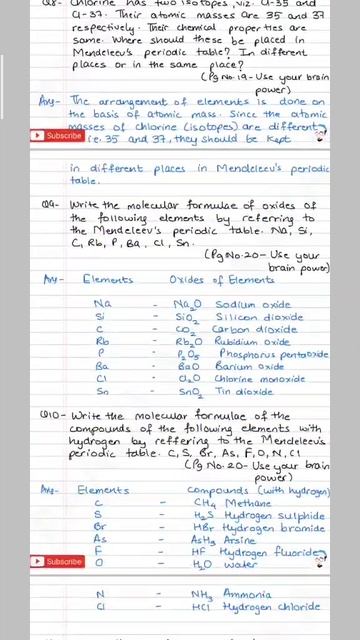 Q8- Chlorine has two isotopes, viz. Cl-35 and
Cl-37. Their atomic masses are 35 and 37
respectively. Their chemical properties are
same. Where should these be placed in
Mendeleev's periodic table? In different
places or in the same place?
(Pg No.19- Use your brain
power)
Ans- The arrangement of elements is done on
the basis of atomic mass. Since the atomic
masses of chlorine (isotopes) are different
Subscribe i.e. 35 and 37, they should be kept
in different places in Mendeleev's periodic
table.
Q9- Write the molecular formulae of oxides of
the following elements by referring to
the Mendeleev's periodic table. Na, Si,
C, Rb, P, Ba, Cl, Sn.
(Pg No.20- Use your
brain power)
Ans- Elements Oxides of Elements
Na - Na₂O Sodium oxide
Si - SiO₂ Silicon dioxide
C - CO₂ Carbon dioxide
Rb - Rb₂O Rubidium oxide
P - P₂O₅ Phosphorus pentoxide
Ba - BaO Barium oxide
Cl - Cl₂O Chlorine monoxide
Sn - SnO₂ Tin dioxide
Q10- Write the molecular formulae of the
compounds of the following elements with
hydrogen by reffering to the Mendeleev's
periodic table. C, S, Br, As, F, O, N, Cl
(Pg No.20- Use your brain
power)
Ans- Elements Compounds (with hydrogen)
C - CH₄ Methane
S - H₂S Hydrogen sulphide
Br - HBr Hydrogen bromide
As - AsH₃ Arsine
F - HF Hydrogen fluoride
Subscribe O - H₂O water
N - NH₃ Ammonia
Cl - HCl Hydrogen chloride